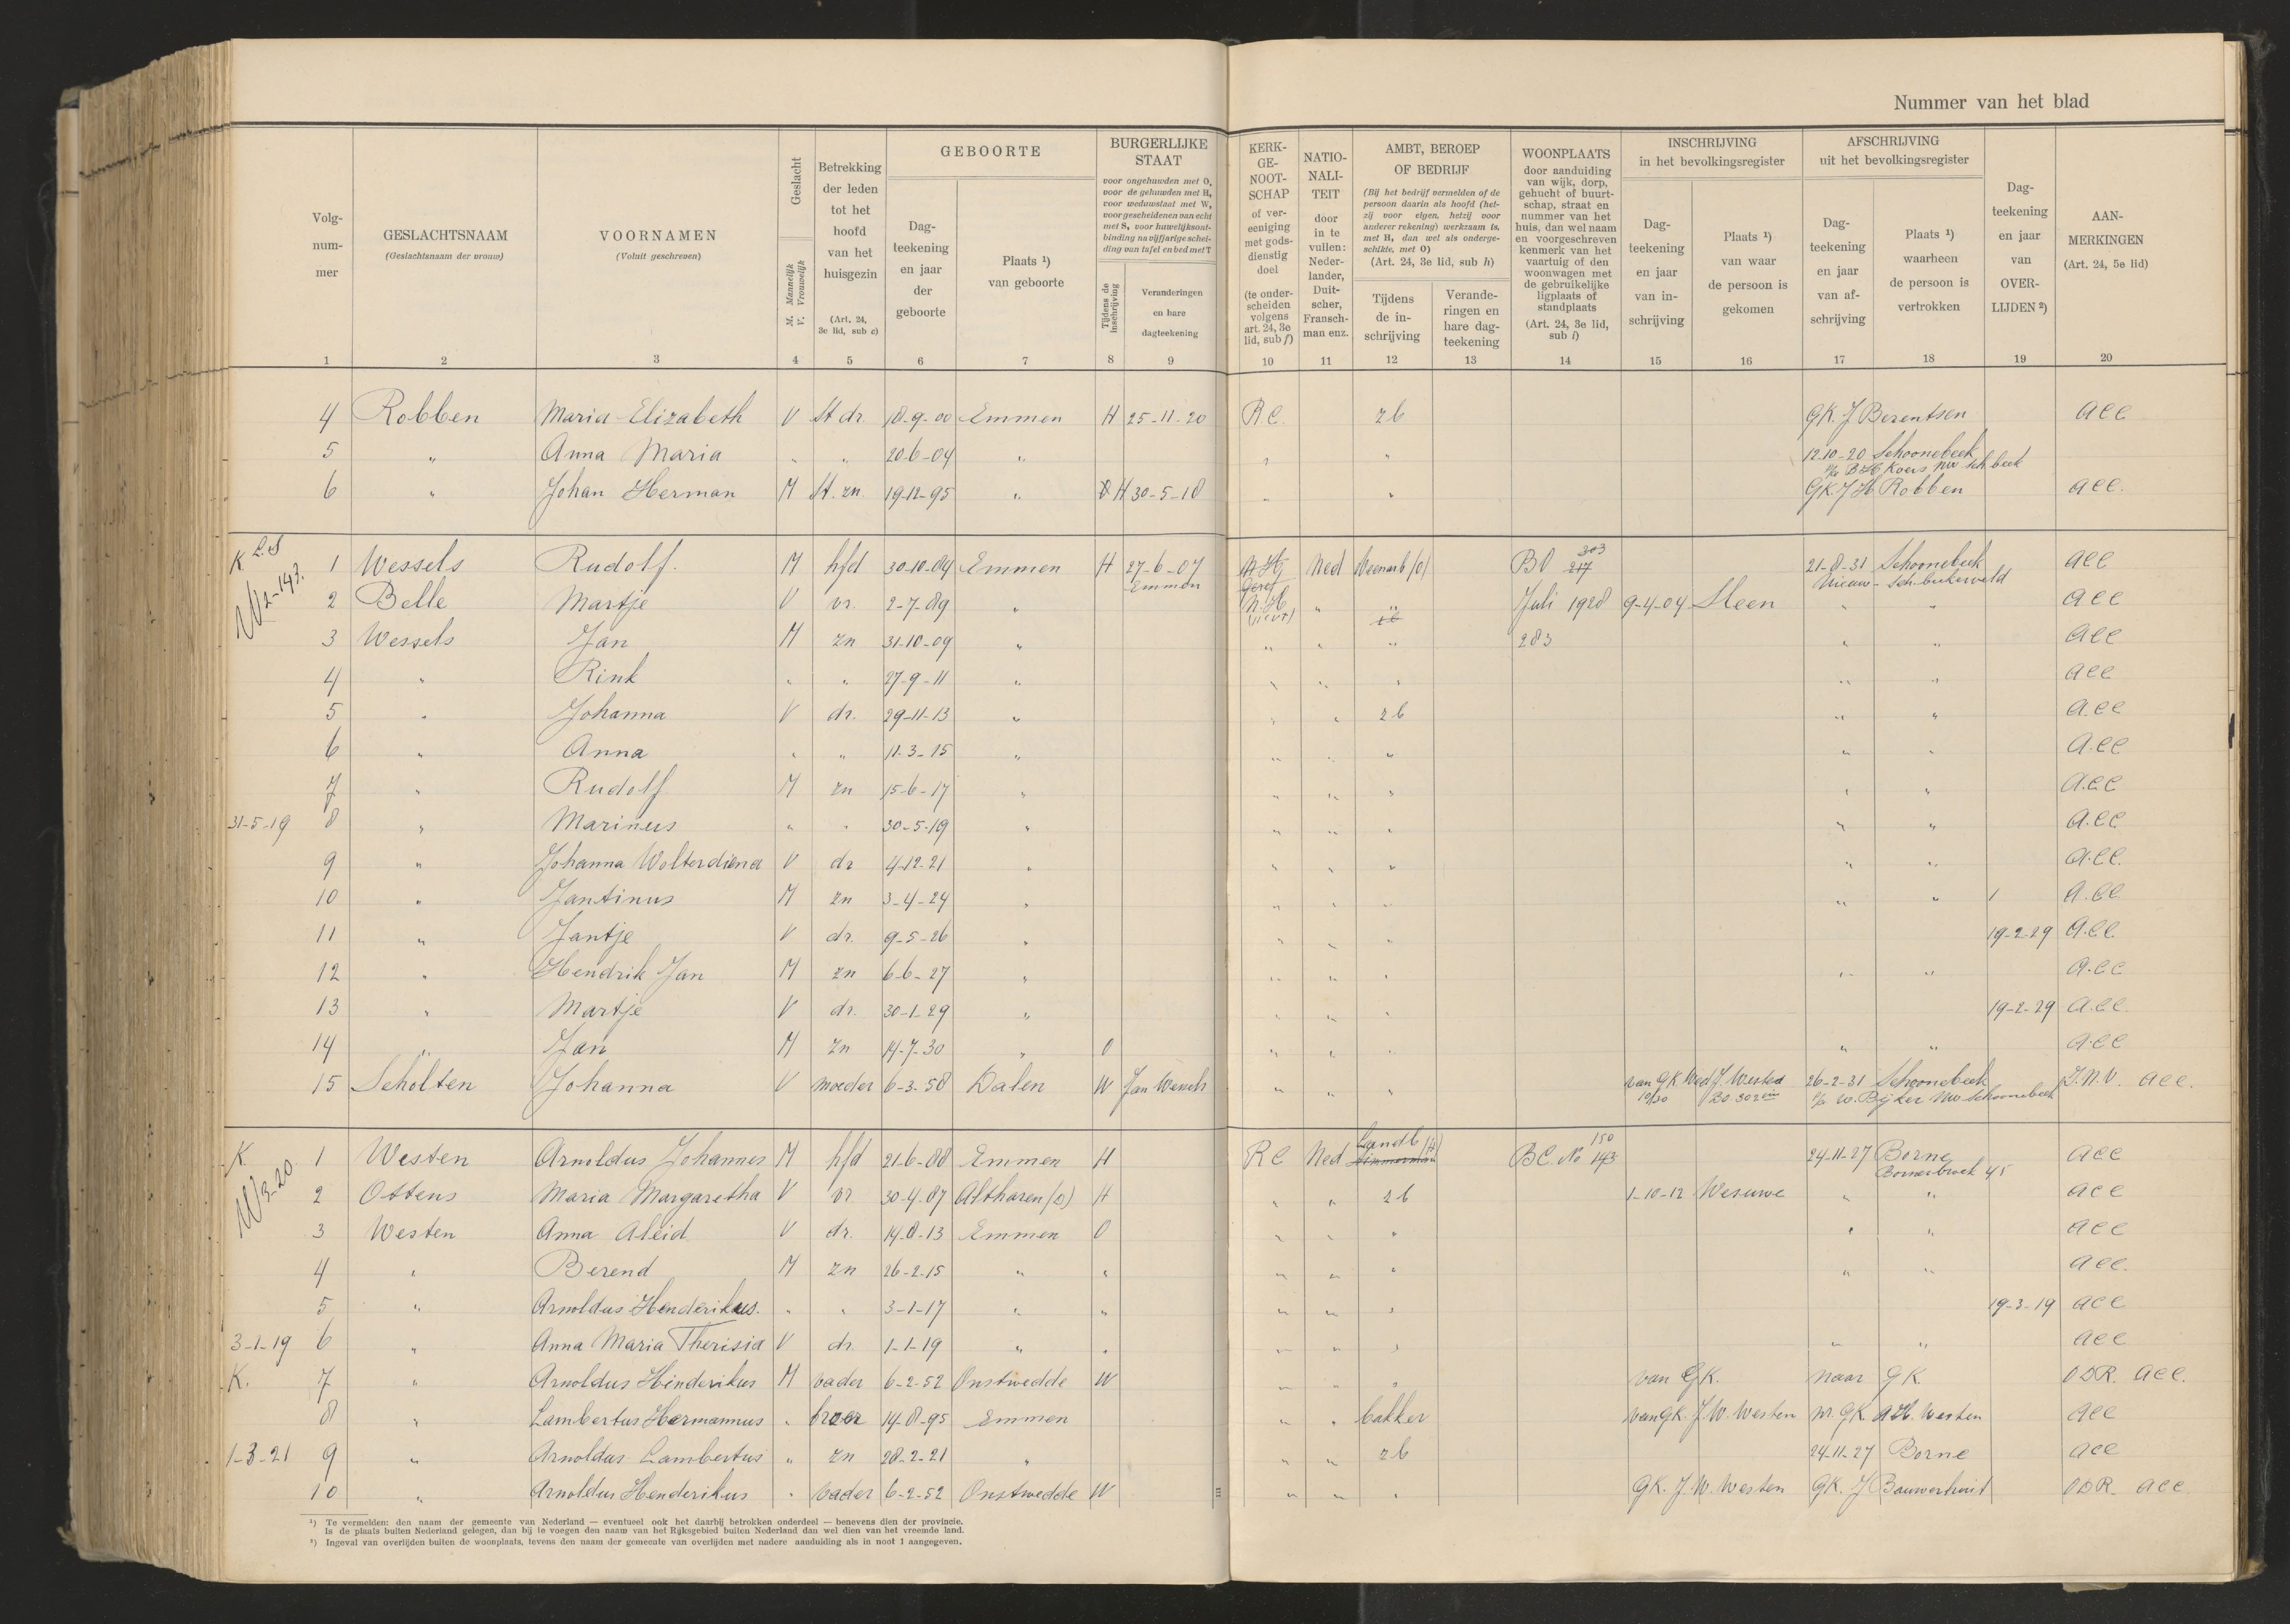 Nummer van het blad
Volg-
num-
mer
1
GESLACHTSNAAM
(Geslachtsnaam der vrouw)
2
VOORNAMEN
(Voluit geschreven)
3
Geslacht
M. Mannelijk
V. Vrouwelijk
4
Betrekking
der leden
tot het
hoofd
van het
huisgezin
(Art. 24,
3e lid, sub c)
5
GEBOORTE
Dag-
teekening
en jaar
der
geboorte
6
Plaats ¹)
van geboorte
7
BURGERLIJKE
STAAT
voor ongehuwden met O,
voor de gehuwden met H,
voor weduwstaat met W,
voor gescheidenen van echt
met S, voor huwelijksont-
binding na vijfjarige schei-
ding van tafel en bed met T
Tijdens de
inschrijving
8
Veranderingen
en hare
dagteekening
9
KERK-
GE-
NOOT-
SCHAP
of ver-
eeniging
met gods-
dienstig
doel
(te onder-
scheiden
volgens
art. 24, 3e
lid, sub f)
10
NATIO-
NALI-
TEIT
door
in te
vullen:
Neder-
lander,
Duit-
scher,
Fransch-
man enz.
11
AMBT, BEROEP
OF BEDRIJF
(Bij het bedrijf vermelden of de
persoon daarin als hoofd (het-
zij voor eigen, hetzij voor
anderer rekening) werkzaam is,
met H, dan wel als onderge-
schikte, met O)
(Art. 24, 3e lid, sub h)
Tijdens
de in-
schrijving
12
Verande-
ringen en
hare dag-
teekening
13
WOONPLAATS
door aanduiding
van wijk, dorp,
gehucht of buurt-
schap, straat en
nummer van het
huis, dan wel naam
en voorgeschreven
kenmerk van het
vaartuig of den
woonwagen met
de gebruikelijke
ligplaats of
standplaats
(Art. 24, 3e lid,
sub i)
14
INSCHRIJVING
in het bevolkingsregister
Dag-
teekening
en jaar
van in-
schrijving
15
Plaats ¹)
van waar
de persoon is
gekomen
16
AFSCHRIJVING
uit het bevolkingsregister
Dag-
teekening
en jaar
van af-
schrijving
17
Plaats ¹)
waarheen
de persoon is
vertrokken
18
Dag-
teekening
en jaar
van
OVER-
LIJDEN ²)
19
AAN-
MERKINGEN
(Art. 24, 5e lid)
20
4 Robben Maria Elizabeth V St dr. 18-9-00 Emmen H 25-11-20 R.C. zb GK. J Berentsen acc
5 " Anna Maria " " 20-6-04 " " " 12-10-20 Schoonebeek
B H Koers Nw Sch beek
6 " Johan Herman M St. zn 19-12-95 " H 30-5-18 " " GK. J H Robben acc.
K
W2-143.
1 Wessels Rudolf. M hfd 30-10-84 Emmen H 27-6-07 Emmen Ned Veenarb (o) B8 217 303 21-8-31 Schoonebeek acc
Geref
2 Belle Martje V vr. 2-7-89 " N.H. " " Juli 1928 9-4-04 Sleen " " acc
3 Wessels Jan M zn 31-10-09 " " " " 283 " " acc
4 " Rink " " 27-9-11 " " " " " " acc
5 " Johanna V dr. 29-11-13 " " " zb " " acc
6 " Anna " " 11-3-15 " " " " " " acc
7 " Rudolf M zn 15-6-17 " " " " " " acc
31-5-19 8 " Marinus " " 30-5-19 " " " " " " acc
9 " Johanna Wolterdiena V dr 4-12-21 " " " " " " acc.
10 " Jantinus M zn 3-4-24 " " " " " " acc.
11 " Jantje V dr. 9-5-26 " " " " 19-2-29 acc.
12 " Hendrik Jan M zn 6-6-27 " " " " " " acc
13 " Martje V dr. 30-1-29 " " " " 19-2-29 acc.
14 " Jan M zn 14-7-30 " O " " " " " acc
15 Scholten Johanna V moeder 6-3-58 Dalen W Jan Wessels " " " van GK Wed J. Westen 26-2-31 Schoonebeek J.N.V. acc.
10/30 B8 302 W. Bijker Nw Schoonebeek
K
W3-20.
1 Westen Arnoldus Johannes M hfd 21-6-88 Emmen H RC Ned Landb (H) Timmerman BC. No 143 150 24-11-27 Borne acc
Bornerbroek 45
2 Ottens Maria Margaretha V vr 30-4-87 Altharen (D) H " " zb 1-10-12 Wesuwe " " acc
3 Westen Anna Aleid V dr. 14-8-13 Emmen O " " " " " acc
4 " Berend M zn 26-2-15 " " " " " " " acc.
5 " Arnoldus Henderikus. " " 3-1-17 " " " " " 19-3-19 acc
3-1-19 6 " Anna Maria Therisia V dr. 1-1-19 " " " " " " " acc
K. 7 " Arnoldus Hinderikus M vader 6-2-52 Onstwedde W " " " van GK. naar GK. ODR. acc.
8 " Lambertus Hermannus " broer 14-8-95 Emmen " " bakker van GK. J W. Westen nr. GK. A H. Westen acc
1-3-21 9 " Arnoldus Lambertus " zn 28-2-21 " " " zb 24-11-27 Borne acc
10 " Arnoldus Henderikus " vader 6-2-52 Onstwedde W " " " GK. J. W. Westen GK. J Bouwerhuit ODR. acc.
¹) Te vermelden: den naam der gemeente van Nederland — eventueel ook het daarbij betrokken onderdeel — benevens dien der provincie.
Is de plaats buiten Nederland gelegen, dan bij te voegen den naam van het Rijksgebied buiten Nederland dan wel dien van het vreemde land.
²) Ingeval van overlijden buiten de woonplaats, tevens den naam der gemeente van overlijden met nadere aanduiding als in noot 1 aangegeven.